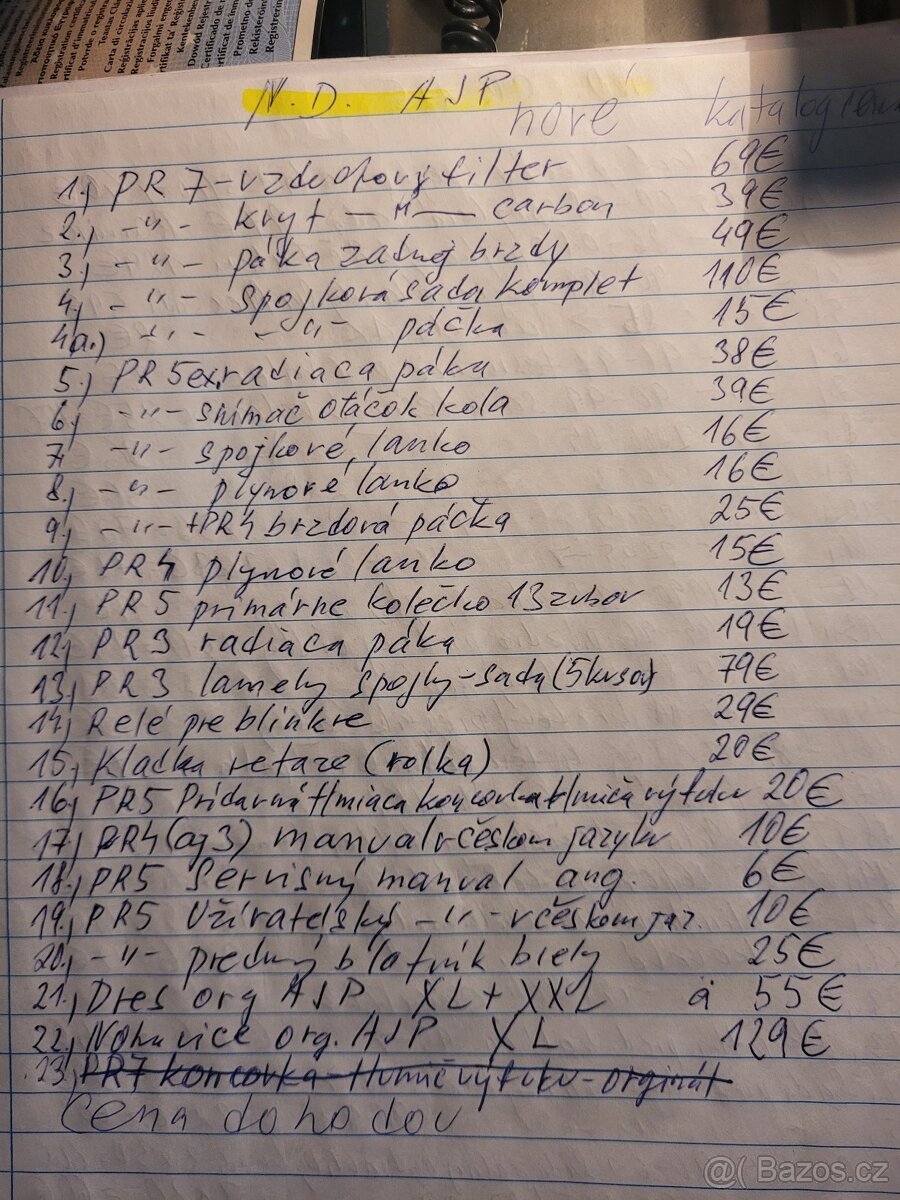 N.D. AJP
nové katalog cena
1.) PR 7 - vzduchový filter 69€
2.) -"- kryt -"- carbon 39€
3.) -"- páka zadnej brzdy 49€
4.) -"- spojková sada komplet 110€
4a.) -"- -"- páčka 15€
5.) PR5 ex. radiaca páka 38€
6.) -"- snímač otáčok kola 39€
7 -"- spojkové lanko 16€
8.) -"- plynové lanko 16€
9.) -"- +PR4 brzdová páčka 25€
10.) PR4 plynové lanko 15€
11.) PR5 primárne kolečko 13 zubov 13€
12.) PR3 radiaca páka 19€
13.) PR3 lamely spojky - sada (5kusov) 79€
14.) Relé pre blinkre 29€
15.) Kladka retaze (rolka) 20€
16.) PR5 Prídavná tlmiaca koncovka tlmiča výfuku 20€
17.) PR4 (aj 3) manual v českom jazyku 10€
18.) PR5 Servisný manual ang. 6€
19.) PR5 Užívateľský -"- v českom jaz. 10€
20.) -"- predný blatník biely 25€
21.) Dres org AJP XL + XXL á 55€
22.) Nohavice org. AJP XL 129€
23.) PR7 koncovka tlmič výfuku - orginál
Cena dohodou
@( Bazos.cz